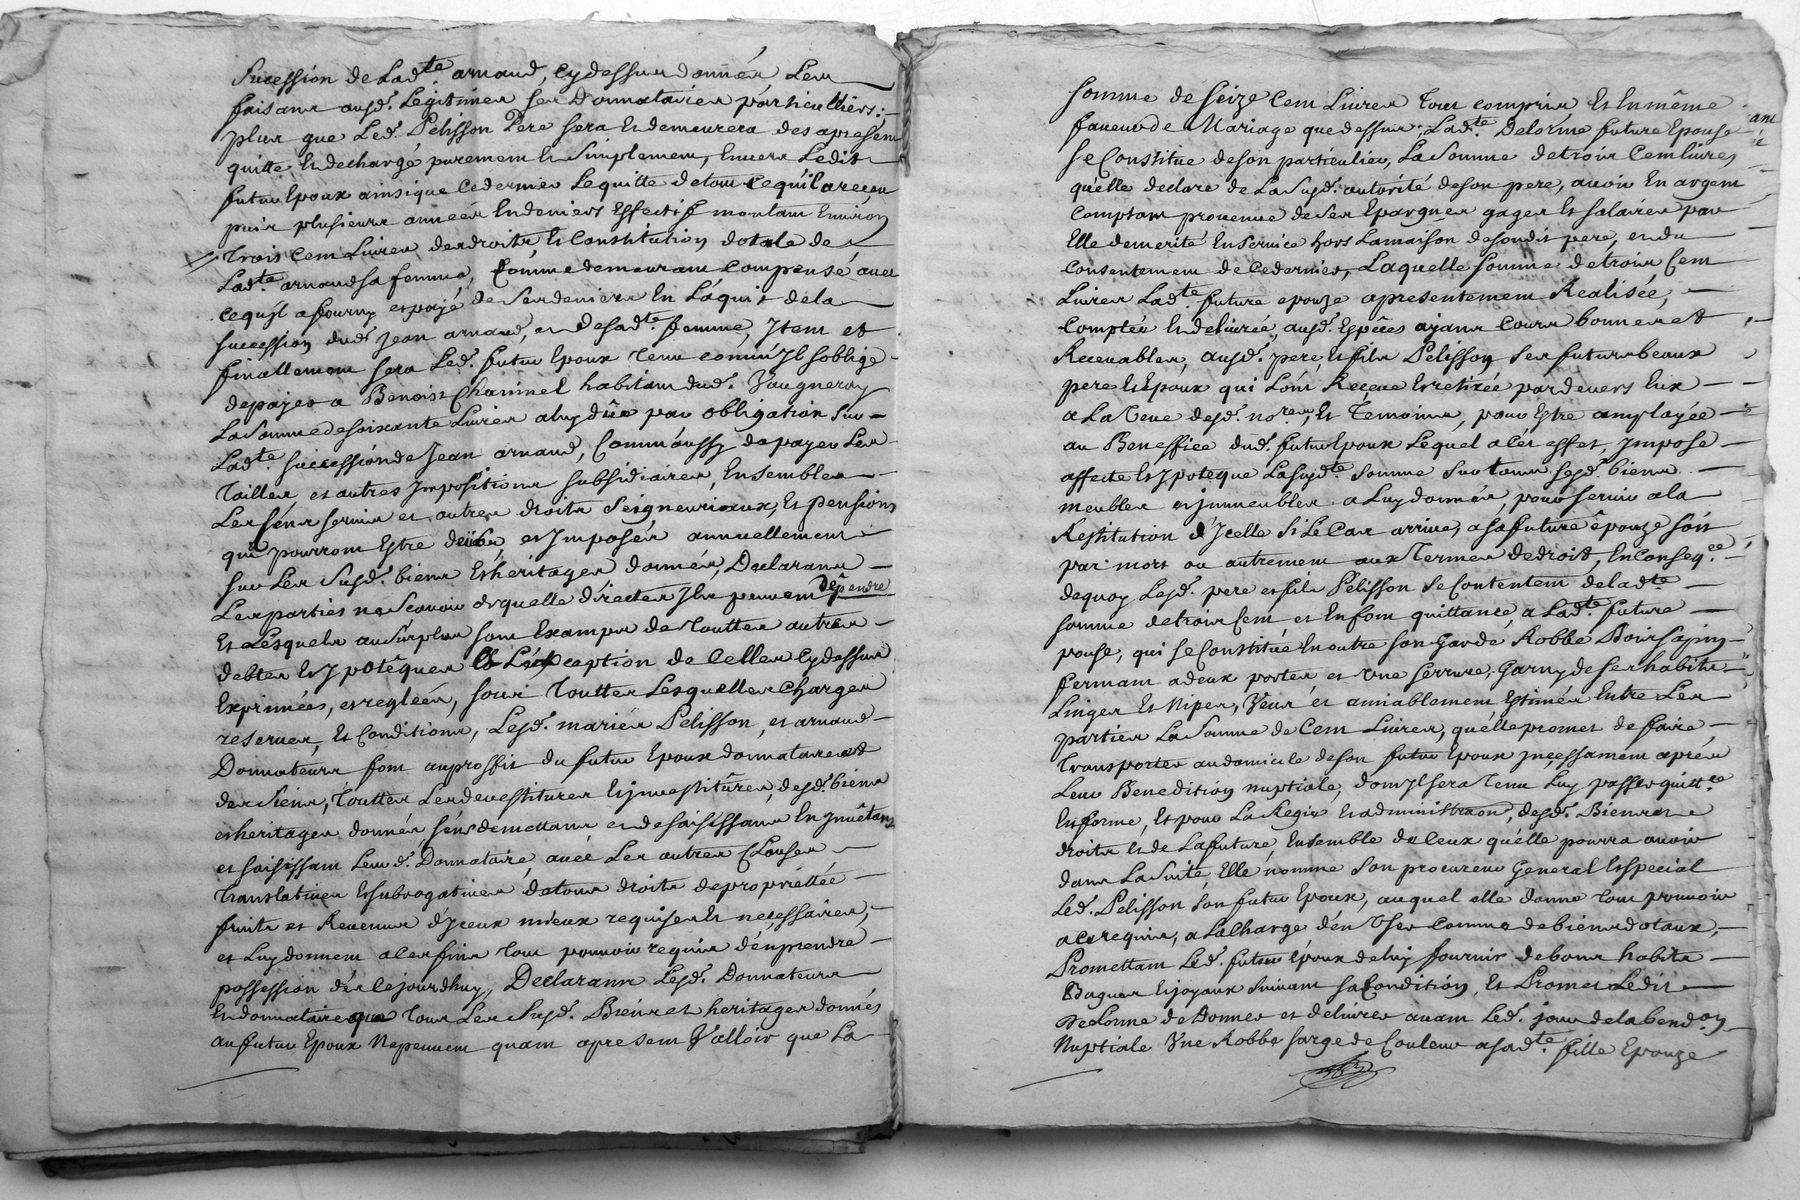 Sucession de Ladte arnaud, cy dessus donnés Leur
faisant ausd. Légitimes ses Donnataires particulliers;
plus que Led. Pelisson Pere sera Et demeurera des apresent
quitte Et dechargé purement Et Simplement, Envers Ledit
futur Epoux ainsi que ce dernier Le quitte de tout ce quil a reçeu
puis plusieurs années En deniers Effectif montant Environ
Trois Cent Livres des droits, Et Constitution dotale de
Ladte arnaud sa femme, Comme demeurant Compensé avec
ce quil a fourny et payé de Ses deniers En L'aquit de la
succession dud. Jean arnaud, et desadte femme, Item et
finallement sera Led. futur Epoux Tenu comm'Jl soblige
de payer a Benoist Chaninel habitant dud. Vaugneray
La Somme de soixante Livres a luy düe par obligation sur
Ladte Succession de Jean arnaud, Comm'aussy de payer Les
Tailles, et autres Jmpositions subsidiaires, Ensembles
Les séns servis et autres droits Seigneuriaux, Et pensions
qui pourront Estre deübs et Jmposés annuellement
sur Les Susd. biens Et heritages donnés, Declarant
Les parties ne Scavoir de quelle directes Jls peuvent dépendre
Et Lesquels au Surplus sont Exampts de Touttes autres
debtes Et Jpotêques à L'éxception de Celles cy dessus
Exprimées, et reglées, sous Touttes Lesquelles Charges
reserves, Et Conditions, Lesd. mariés Pelisson, et arnaud
Donnateurs font au proffit du futur Epoux donnataire et
des Siens, Touttes Les devestitures Et jnvestitûres, desd. biens
et heritages donnés s'en demettant et desaisissant En jnvêtant
et saisissant Leurd. Donnataire, avéc Les autres Clauses
Translatives Et subrogatives, de tous droits de propriéttée
fruits et Revenus d'Jceux mieux requises Et necessaires,
et Luy donnent a Ces fins Tout pouvoir requis d'én prendre
possession dés Ce jourdhuy, Declarants Lesd. Donnateurs
Et donnataire que Tous Les Susd. Biens et heritages donnés
au futur Epoux Ne peuvent quant apresent Valloir que La
Somme de Seize Cent Livres Tout compris, Et En même
faveur de Mariage que dessus, Ladte Delorme future Epouse
Se Constitue de son particulier, La Somme de trois Cent livres
qu'elle declare de La Susd. autorité de son pere, avoir En argent
Comptant provenue de Ses Epargnes gages Et salaires par
Elle demerité En Service hors La maison de sondit pere, et du
Consentement de Ce dernier, Laquelle Somme de trois Cent
Livres Ladte future epouze a presentement Realisée,
Comptée Et delivrée, ausd. Espêces ayant Cours bonnes et
Recevables, ausd. pere, Et fils Pelisson Ses futurs beaux
pere Et Epoux qui L'ont Reçeue Et retirée par devers Eux
a La Veue desd. nores, Et Témoins, pour Estre amployée
au Beneffice dud. futur Epoux Léquel a Cét effet, Jmpose
affecte Et Jpoteque La Susdte Somme Sur tous Sesd. biens
meubles et jmmeubles a Luy donnés, pour servir a la
Restitution d'Jcelle Si Le Cas arrive, a sa future êpouze soit
par mort ou autrement aux Termes de droit, En Conseqce
dequoy Lesd. pere et fils Pelisson Se Contentent de ladte
somme de trois Cent et En font quittance, a Ladte future
Epouse, qui Se Constitüe En outre Son Garde Robbe Bois Sapin
fermant a deux portes et Une Serrure, Garny de Ses habits
Linges Et Nipes, Veus et amiablement Estimés Entre Les
parties La Somme de Cent Livres, qu'elle promet de faire
Transporter au domicile de son futur Epoux jncessament aprés
Leur Benediction nuptiale, dont Jl sera Tenu Luy passer quittce
En forme, Et pour La Regie Et administraon, desd. Biens et
droits Et de La future, Ensemble de Ceux qu'elle pourra avoir
dans La Suite, Elle nomme Son procureur General Et special
Led. Pelisson Son futur Epoux, auquel elle donne Tout pouvoir
a Ce requis, a La Charge d'en User Comme de biens dotaux,
Promettant Led. futur Epoux de luy fournir de bons habits
Bagues Et joyaux Suivant sa Condition, Et Promet Ledit
Delorme de Donner et delivrer avant Led. jour de la bendon
Nuptiale Une Robbe Sarge de Couleur a Sadte fille Epouze